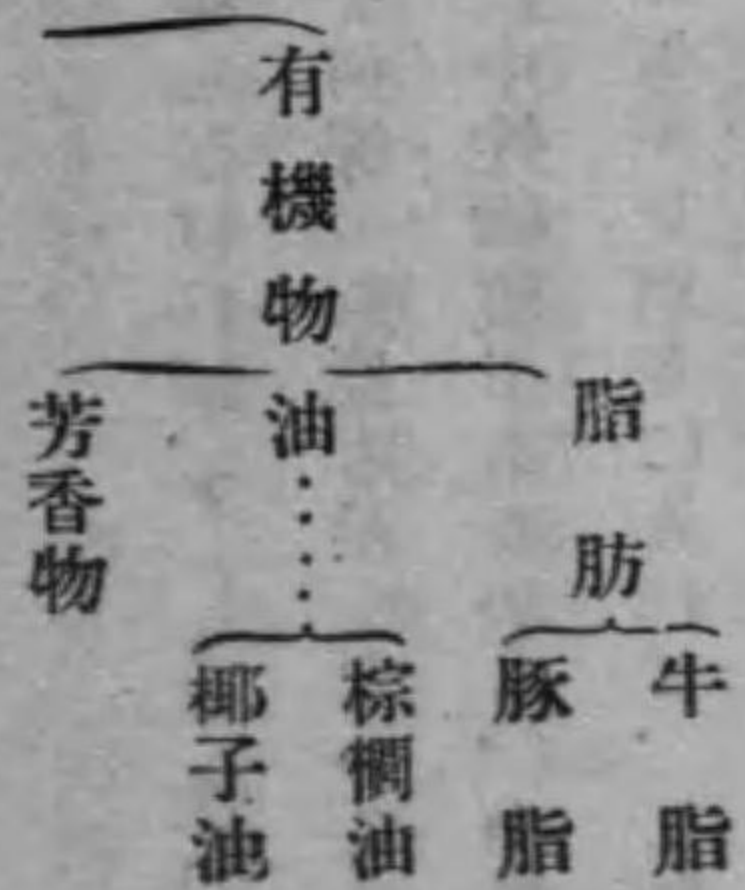 有機物
脂肪
牛脂
豚脂
油
棕櫚油
椰子油
芳香物